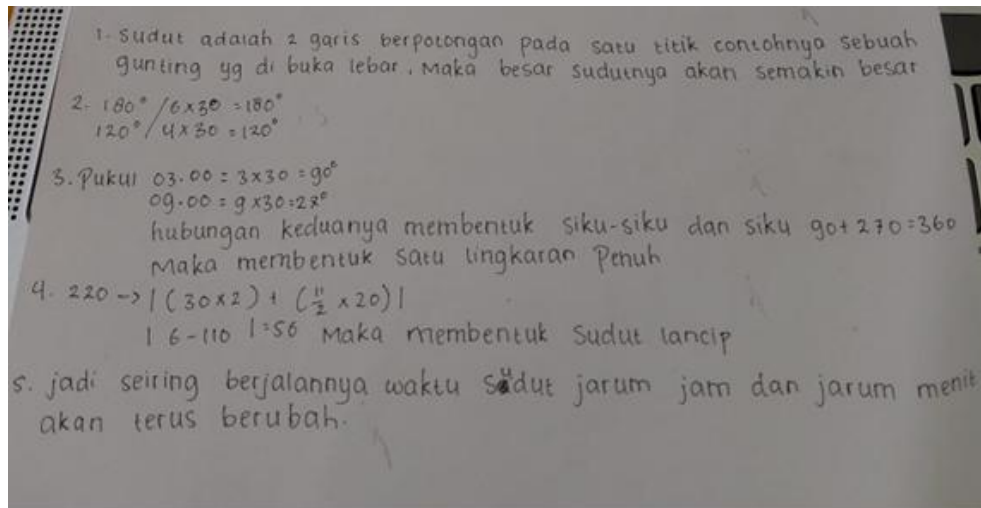 1. Sudut adalah 2 garis berpotongan pada satu titik contohnya sebuah
gunting yg di buka lebar. Maka besar sudutnya akan semakin besar
2. 180° / 6 x 30 = 180°
120° / 4 x 30 = 120°
3. Pukul 03.00 = 3 x 30 = 90°
09.00 = 9 x 30 = 27°
hubungan keduanya membentuk siku-siku dan siku 90 + 270 = 360
Maka membentuk satu lingkaran Penuh
4. 220 -> | (30 x 2) + (11/2 x 20) |
| 6 - 110 | = 50 Maka membentuk Sudut lancip
5. jadi seiring berjalannya waktu Sudut jarum jam dan jarum menit
akan terus berubah.